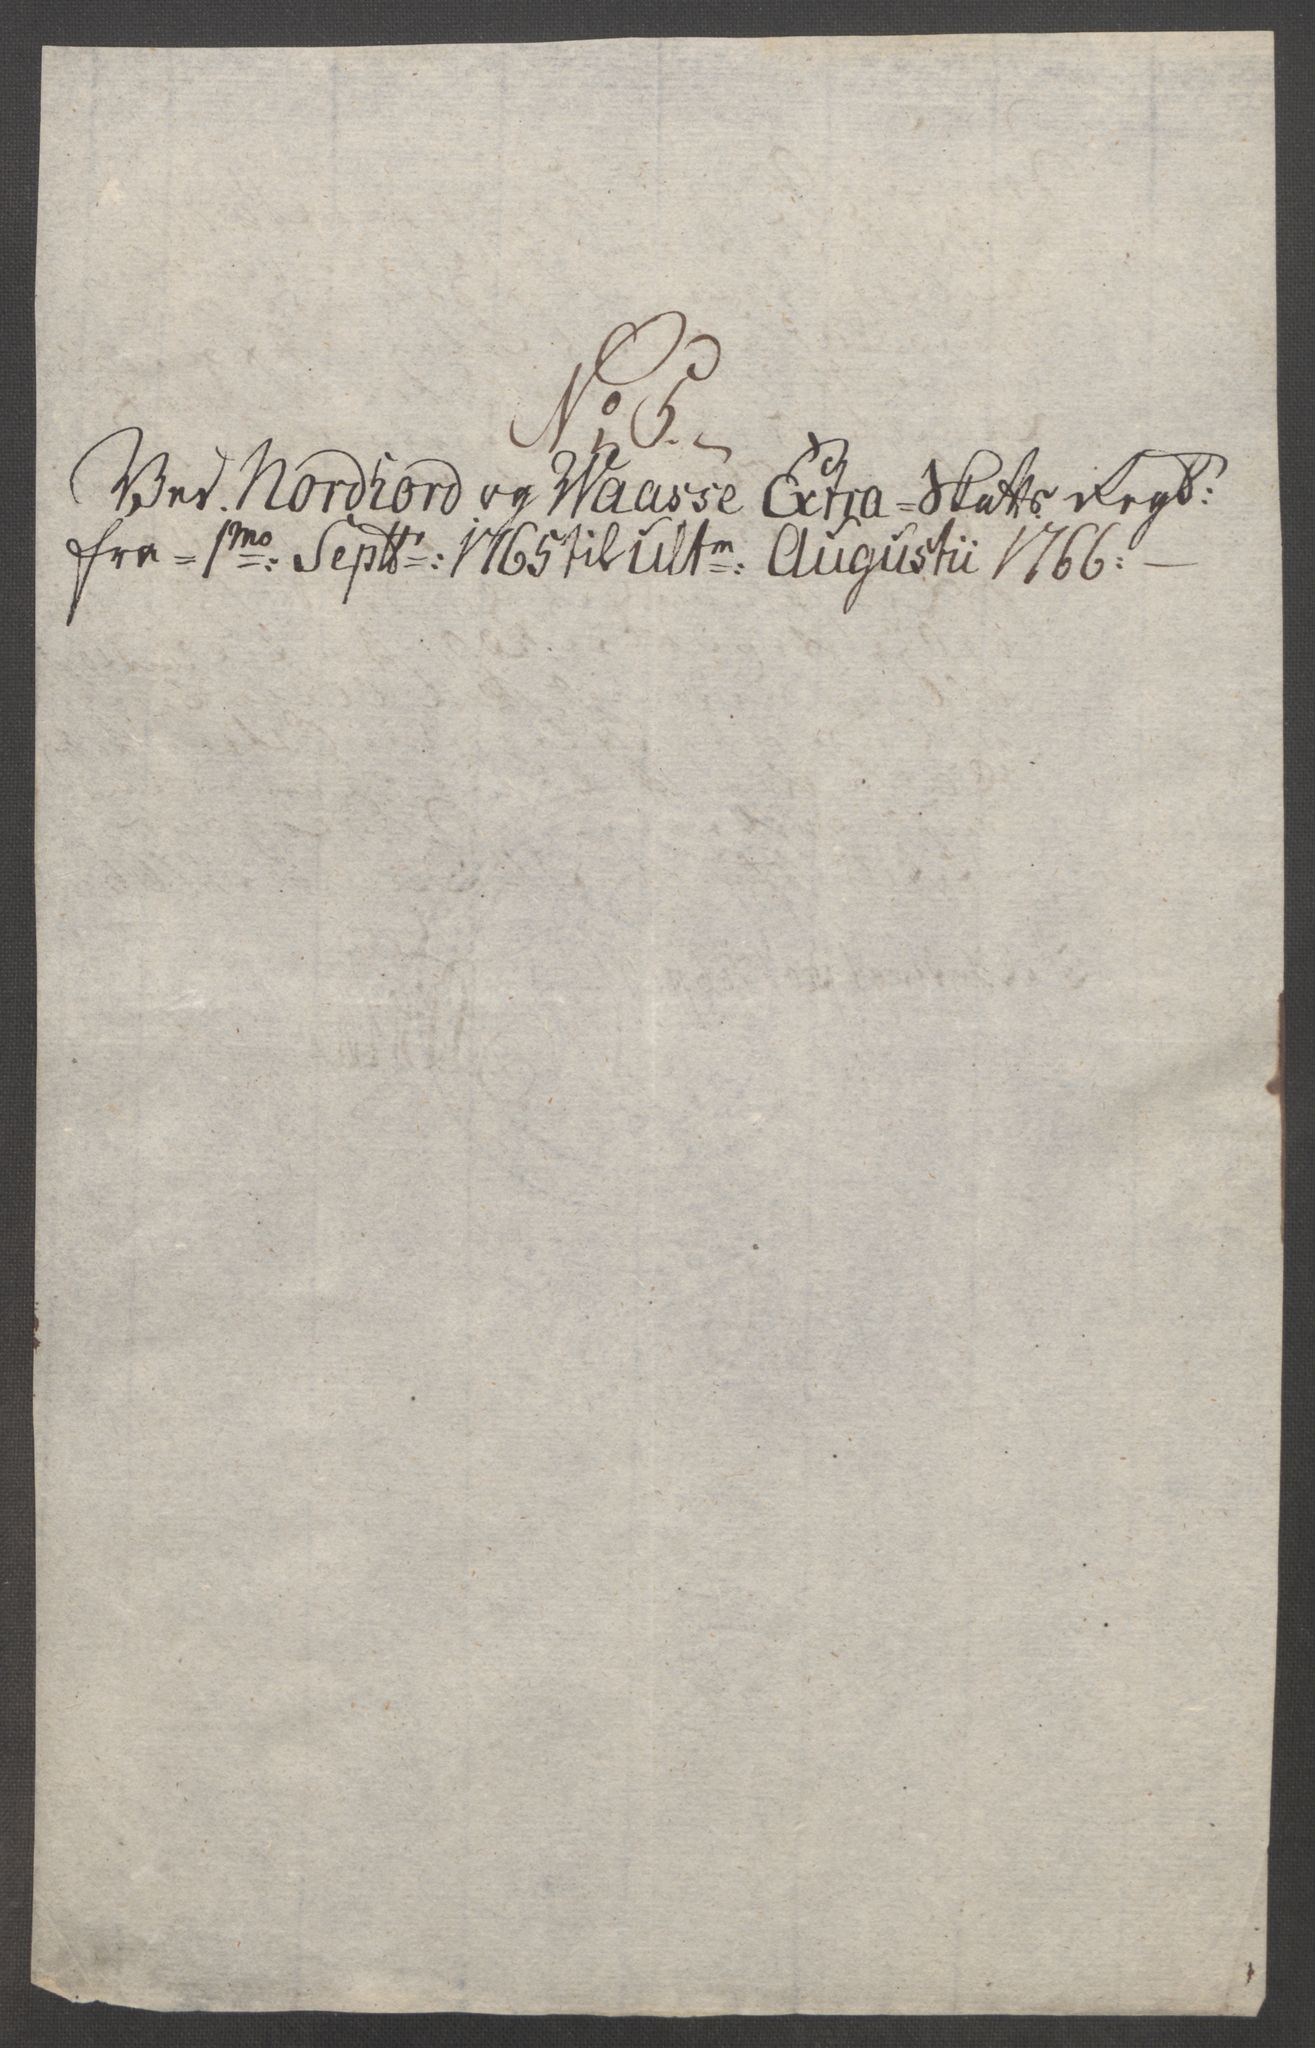 No 5.
Ved Nordhord og Waasse Extra=Skatts Regb:
fra=1mo: Septbr: 1765 til Ultm: Augustii 1766:—